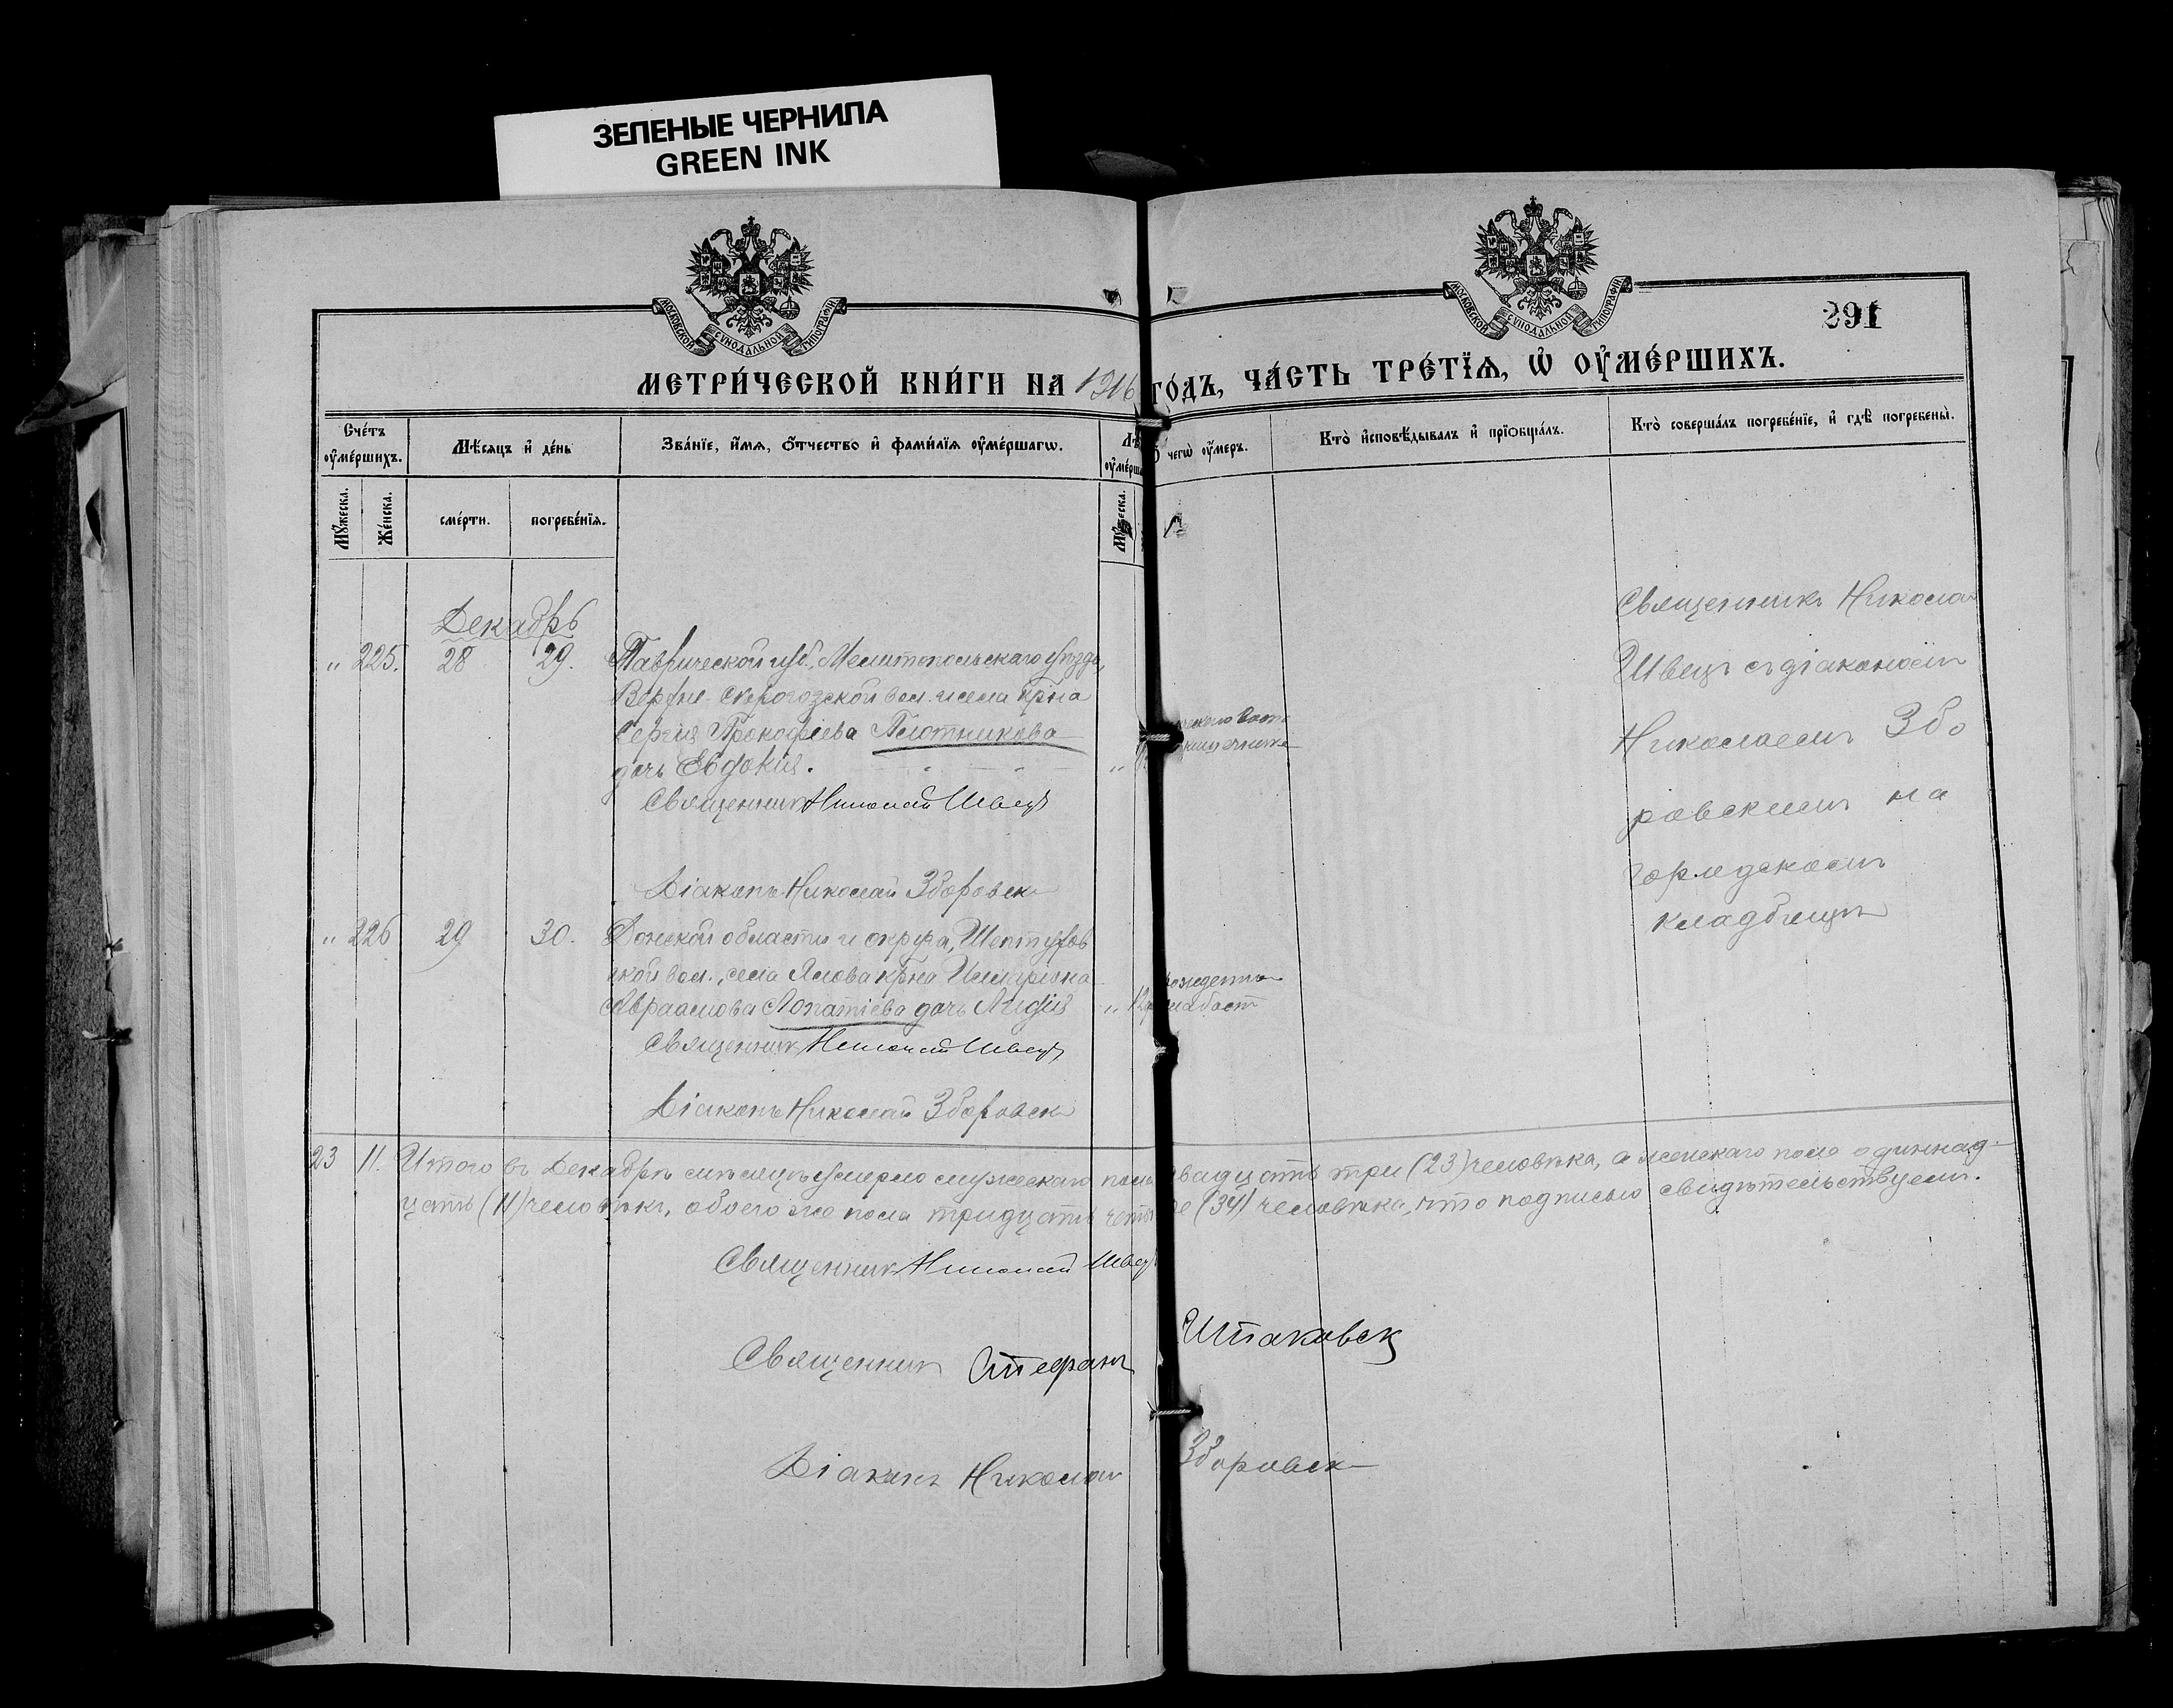 ЗЕЛЕНЫЕ ЧЕРНИЛА
GREEN INK
МОСКОВСКОЙ СѴНОДАЛЬНОЙ ТИПОГРАФІИ
МОСКОВСКОЙ СѴНОДАЛЬНОЙ ТИПОГРАФІИ
291
МЕТРИ́ЧЕСКОЙ КНИ́ГИ НА 1916 ГО́ДЪ, ЧА́СТЬ ТРЕ́ТЇѦ, Ѡ ОУ҆МЕ́РШИХЪ.
Сче́тъ оу҆ме́ршихъ.
Мѣ́сяцъ и҆ де́нь
Зва́нїе, и҆́мя, ѻ҆́тчество и҆ фами́лїя оу҆ме́ршагѡ.
Лѣ
оу҆ме́рша
чегѡ̀ оу҆́меръ.
Кто̀ и҆сповѣ́дывалъ и҆ прїѻбща́лъ.
Кто̀ соверша́лъ погребе́нїе, и҆ гдѣ̀ погребены̀.
Мꙋ́жеска.
Же́нска.
сме́рти.
погребе́нїя.
Мꙋ́жеска.
Декабрь
" 225. 28 29. Таврической губ., Мелитопольскаго уѣзда,
Верхне-Серогозской вол. и села кр-на
Сергія Прокофіева Плотникова
дочь Евдокія.
Священникъ Николай Швецъ
Діаконъ Николай Зборовск
Священникъ Николай
Швецъ съ діакономъ
Николаемъ Збо
ровскимъ на
городскомъ
кладбищѣ
" 226 29 30. Донской области и округа,
вол., села кр-на
Авраамова Лопатіева дочь Лидія
рожденія
слабост
Священникъ Николай Швецъ
Діаконъ Николай Зборовск
23 11. Итого въ Декабрѣ мѣсяцѣ умерло мужескаго пола двадцать три (23) человѣка, а женскаго пола одиннад-
цать (11) человѣкъ, обоего же пола тридцать четыре (34) человѣка, что подписью свидѣтельствуемъ.
Священникъ Николай Швецъ
Священникъ Стефанъ Шпаковск
Діаконъ Николай Зборовск